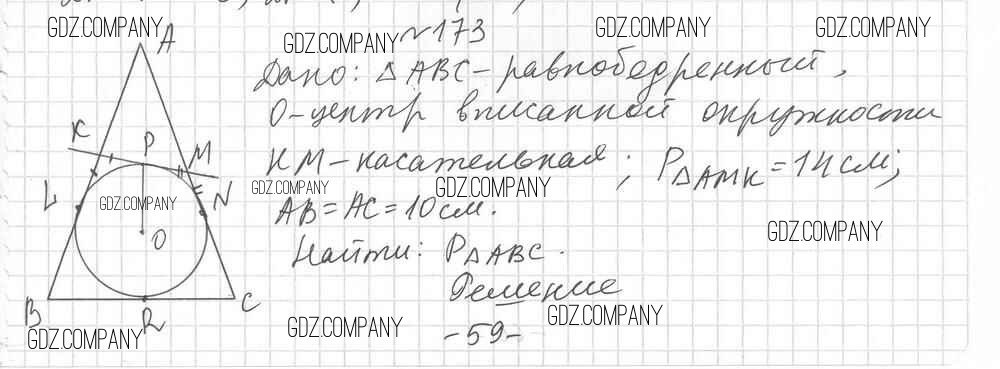 GDZ.COMPANY GDZ.COMPANY GDZ.COMPANY GDZ.COMPANY
№173
Дано: △ABC - равнобедренный,
O-центр вписанной окружности
KM-касательная; P△AMK = 14 см;
AB = AC = 10 см.
Найти: P△ABC.
Решение
-59-
A
K P M
L N
O
B R C
GDZ.COMPANY GDZ.COMPANY GDZ.COMPANY
GDZ.COMPANY
GDZ.COMPANY GDZ.COMPANY GDZ.COMPANY